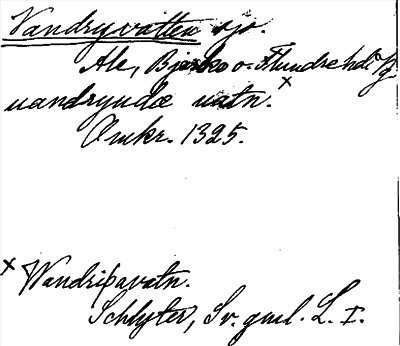 Vandryvatten sjö.
Ale, Bjärke o. Flundre hdr Vg
uandryudæ uatn. x
Omkr. 1325.
x Wandriþavatn.
Schlyter, Sv. gml. L. I.